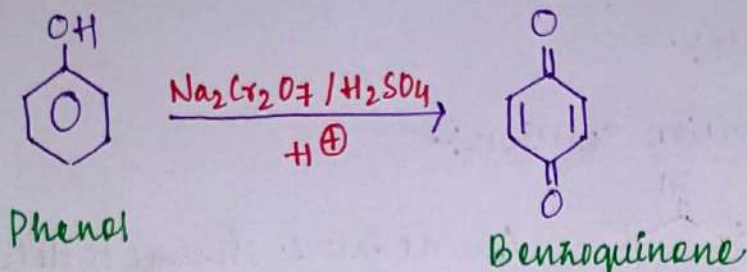 OH
Na2Cr2O7/H2SO4
H⊕
Phenol
O
O
Benzoquinone